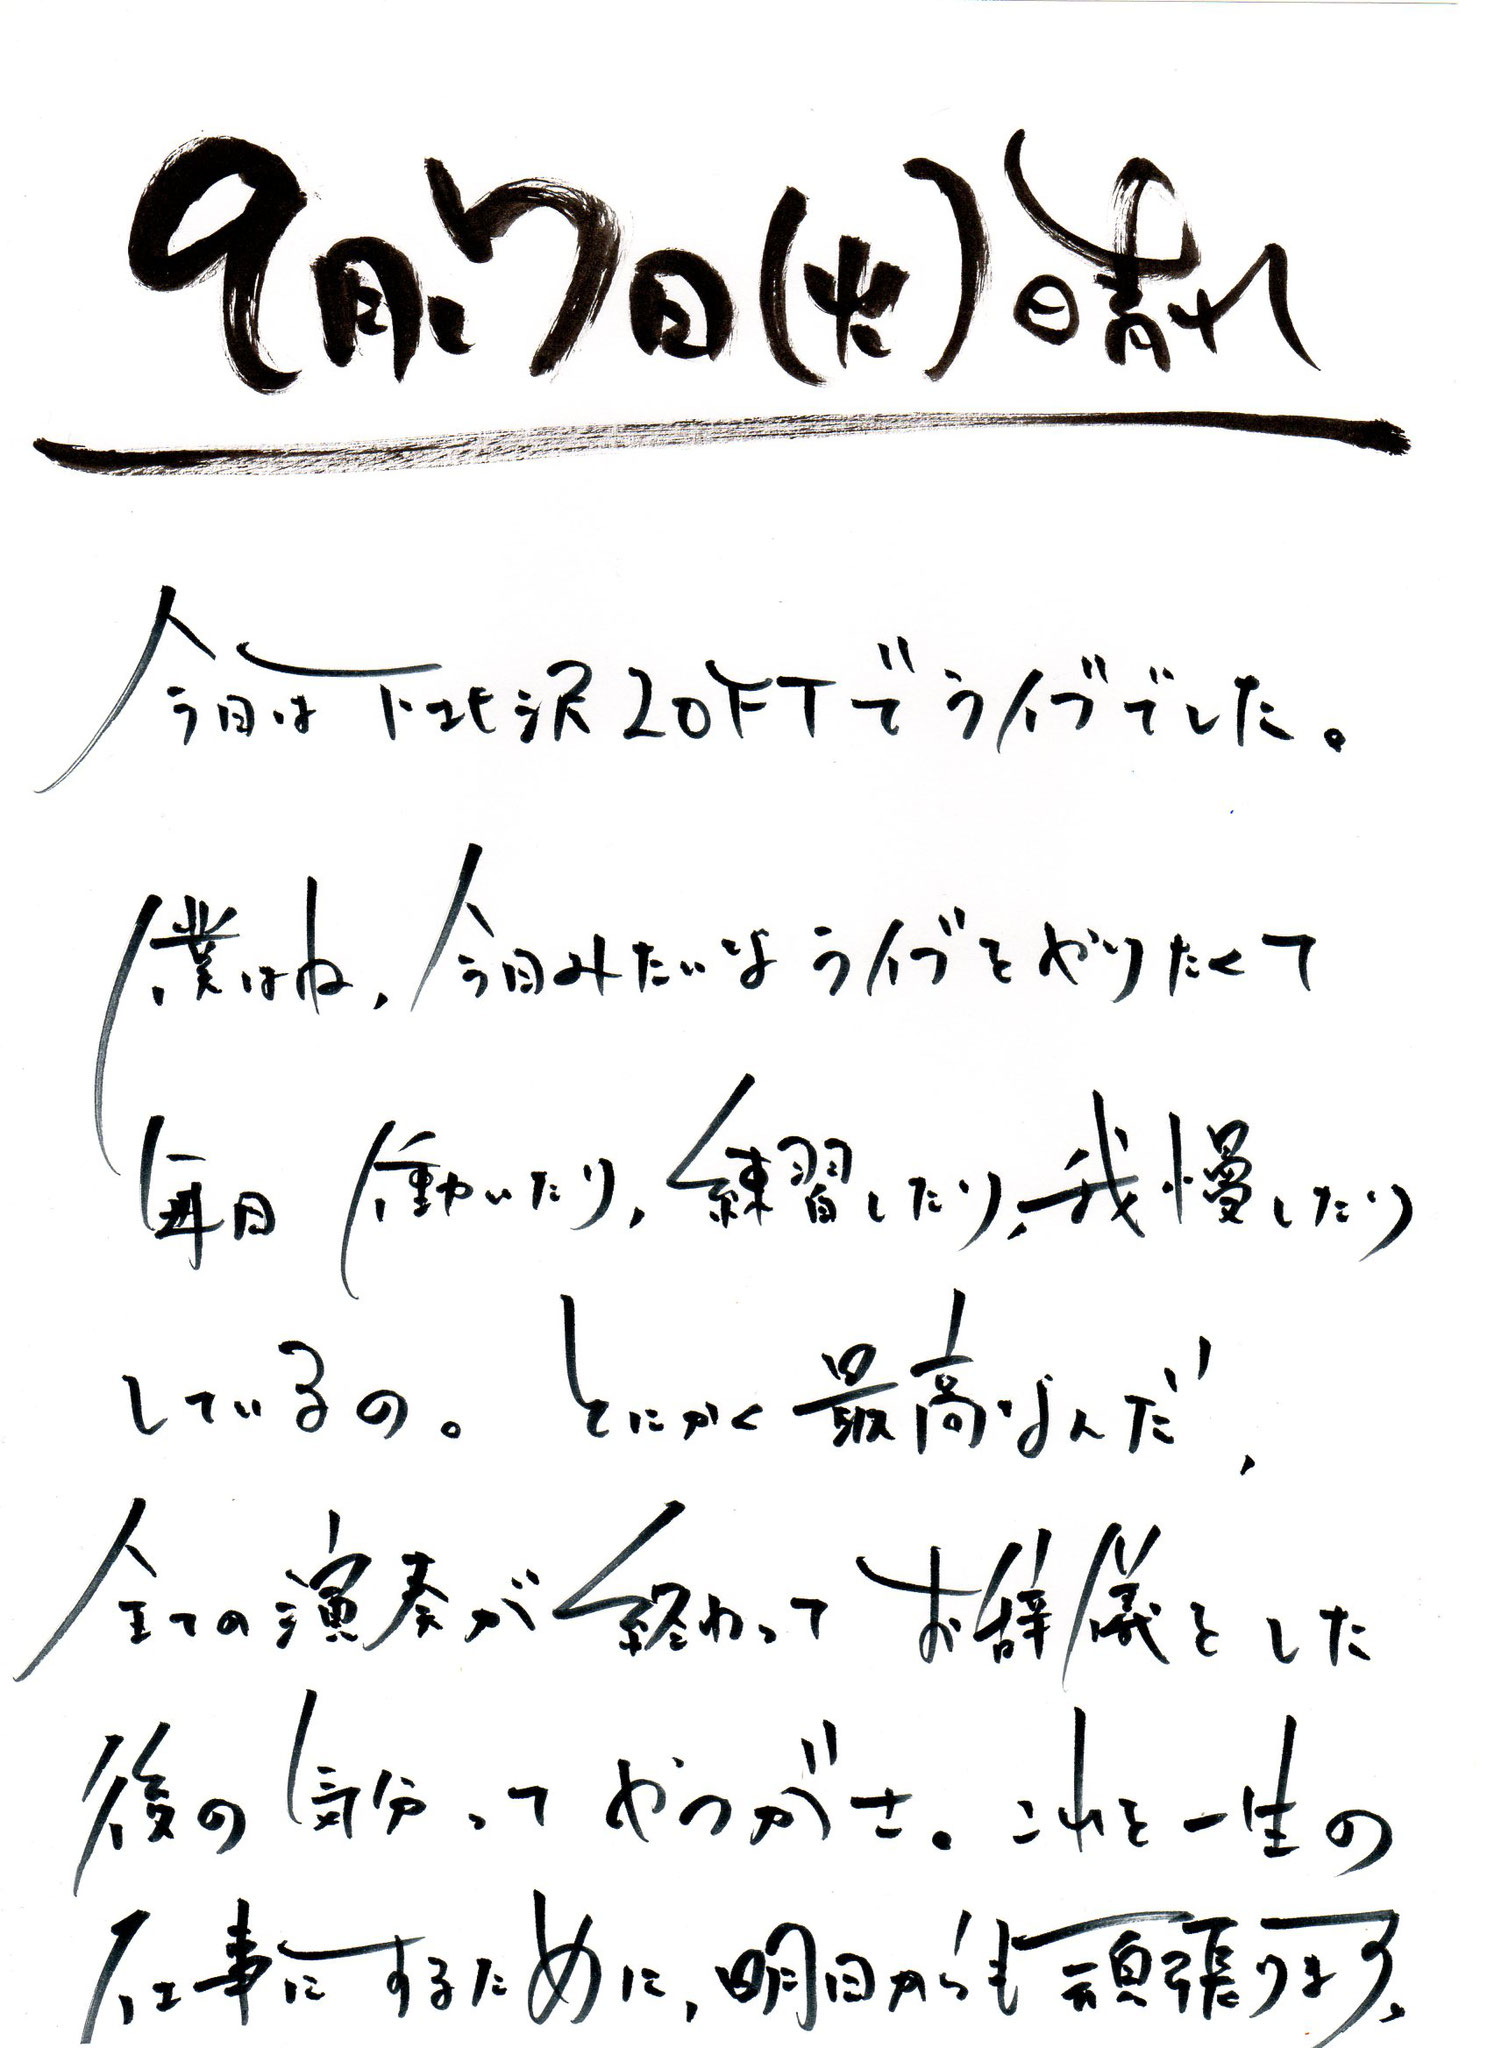 9月7日(火)晴れ
今日は下北沢20FTでライブでした。
僕はね、今日みたいなライブをやりたくて
毎日働いたり、練習したり、我慢したり
しているの。とにかく最高なんだ、
全ての演奏が終わってお辞儀をした
後の気分ってやつがさ。これを一生の
仕事にするために、明日からも頑張ります、